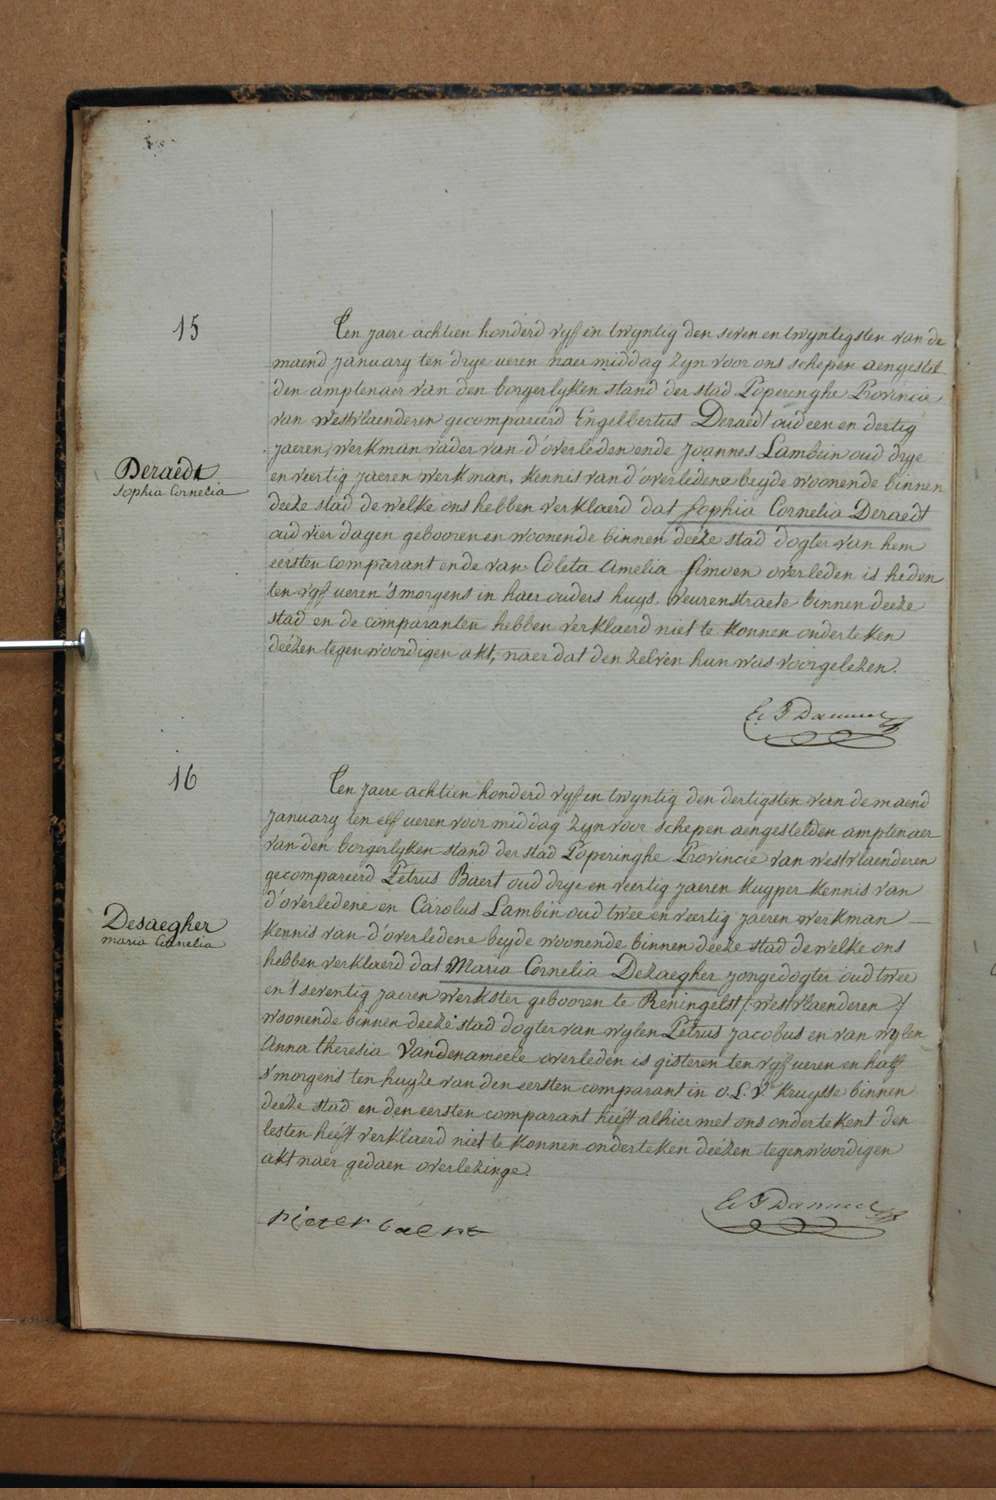 15
Ten jaere achtien honderd vyf en twyntig den seven en twyntigsten van de
maend january ten drye ueren naer middag zyn voor ons schepen aengestel
den amptenaer van den borgerlyken stand der stad Poperinghe Provincie
van westvlaenderen gecompareerd Engelbertus Deraedt oud een en dertig
jaeren, werkman vader van d'overleden ende Joannes Lambein oud drye
en veertig jaeren werkman, kennis van d'overledene beyde woonende binnen
Deraedt
Sophia Cornelia
deeze stad de welke ons hebben verklaerd dat Sophia Cornelia Deraedt
oud vier dagen gebooren en woonende binnen deeze stad dogter van hem
eersten comparant ende van Coleta Amelia Simoen overleden is heden
ten vyf ueren 's morgens in haer ouders huys. Veurenstraete binnen deeze
stad en de comparanten hebben verklaerd niet te konnen onderteken
deézen tegenwoordigen akt, naer dat den zelven hun was voorgelezen.
16
Ten jaere achtien honderd vyf en twyntig den dertigsten van de maend
January ten elf ueren voor middag zyn voor schepen aengestelden amptenaer
van den borgerlyken stand der stad Poperinghe Provincie van westvlaenderen
gecompareerd Petrus Baert oud drye en veertig jaeren kuyper kennis van
d'overledene en Carolus Lambin oud twee en veertig jaeren werkman
Desaegher
maria Cornelia
kennis van d'overledene beyde woonende binnen deeze stad de welke ons
hebben verklaerd dat Maria Cornelia Dezaegher jongedogter oud twee
en 't seventig jaeren werkster gebooren te Reningelst /: westvlaenderen :/
woonende binnen deeze stad dogter van wylen Petrus Jacobus en van wylen
Anna theresia Vandenameele overleden is gisteren ten vyf ueren en half
s'morgens ten huyze van den eersten comparant in O.L.V. kruysse binnen
deeze stad en den eersten comparant heéft alhier met ons ondertekent den
lesten heéft verklaerd niet te konnen onderteken deézen tegenwoordigen
akt naer gedaen overlezinge.
pieter baert